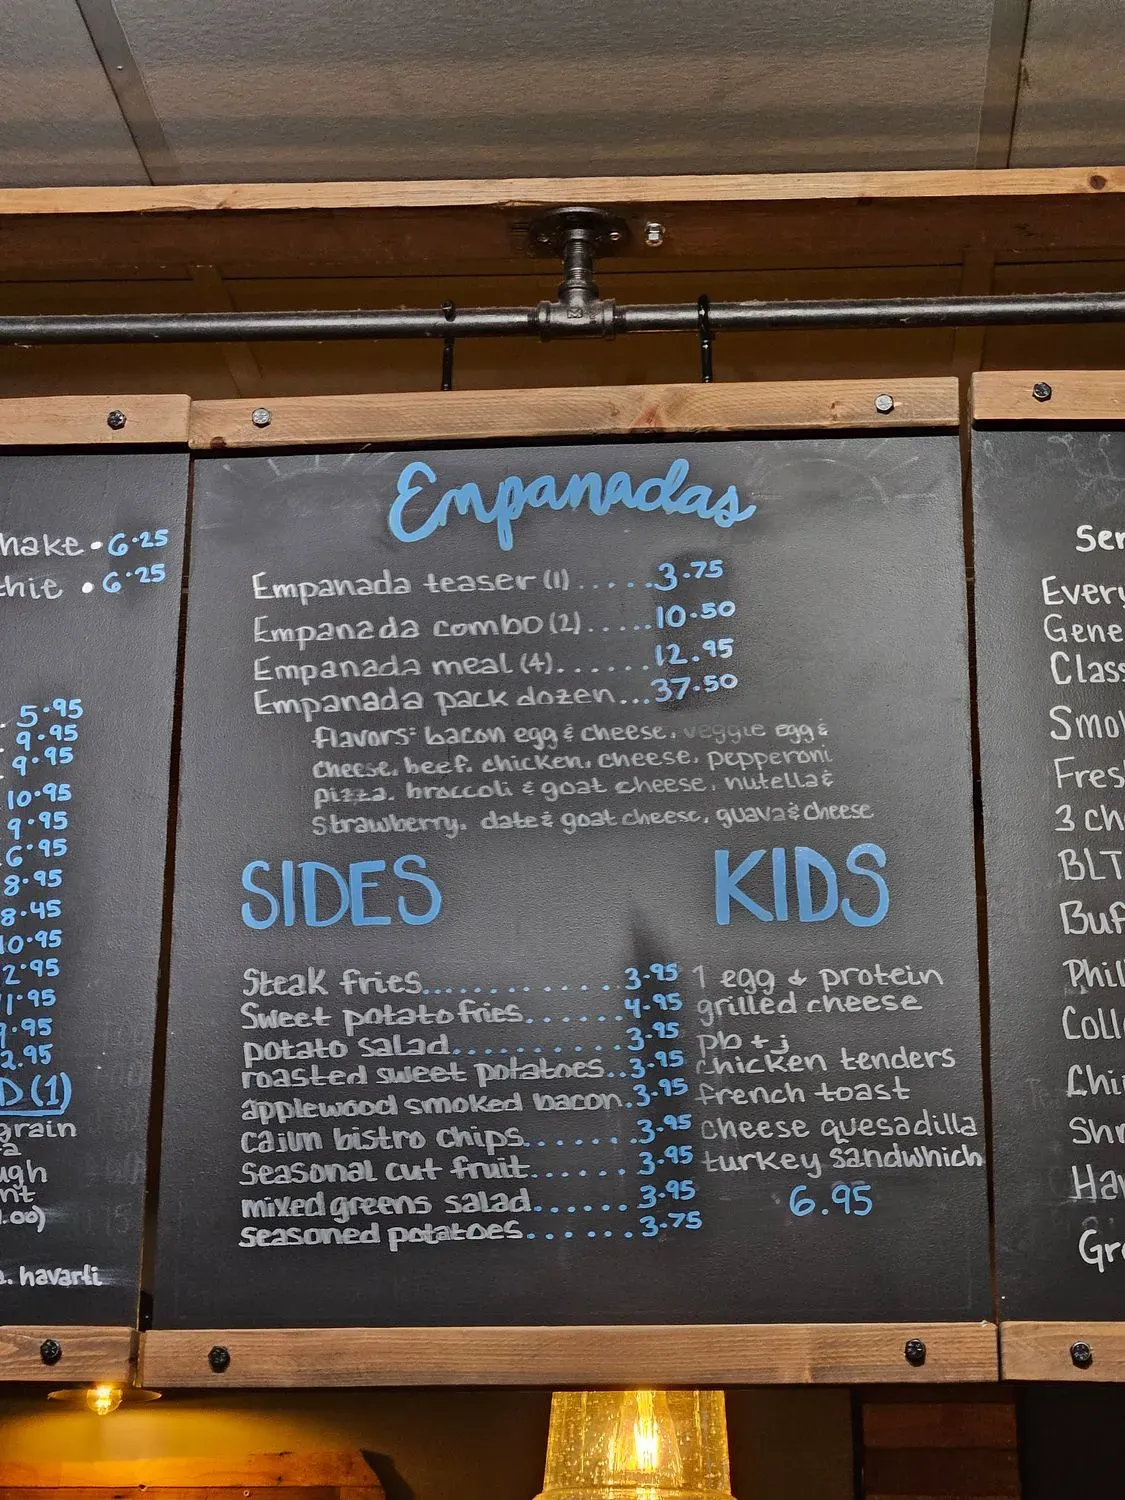 hake • 6.25
thie • 6.25
5.95
9.95
9.95
10.95
9.95
6.95
8.95
8.45
10.95
2.95
1.95
9.95
2.95
D (1)
grain
ugh
nt
.00)
havarti
Empanadas
Empanada teaser (1).....3.75
Empanada combo (2)......10.50
Empanada meal (4).......12.95
Empanada pack dozen...37.50
flavors: bacon egg & cheese, veggie egg &
cheese, beef, chicken, cheese, pepperoni
pizza, broccoli & goat cheese, nutella &
strawberry, date & goat cheese, guava & cheese
SIDES
Steak fries...............3.95
Sweet potato fries.......4.95
potato salad.............3.95
roasted sweet potatoes..3.95
applewood smoked bacon.3.95
cajun bistro chips.......3.95
seasonal cut fruit.......3.95
mixed greens salad......3.95
seasoned potatoes.......3.75
KIDS
1 egg & protein
grilled cheese
pb + j
chicken tenders
french toast
cheese quesadilla
turkey sandwhich
6.95
Ser
Every
Gene
Class
Smo
Fres
3 ch
BLT
Buf
Phil
Coll
Chi
Shr
Ha
Gr